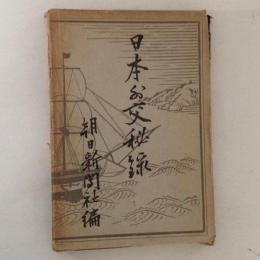 日本外交秘録
朝日新聞社編